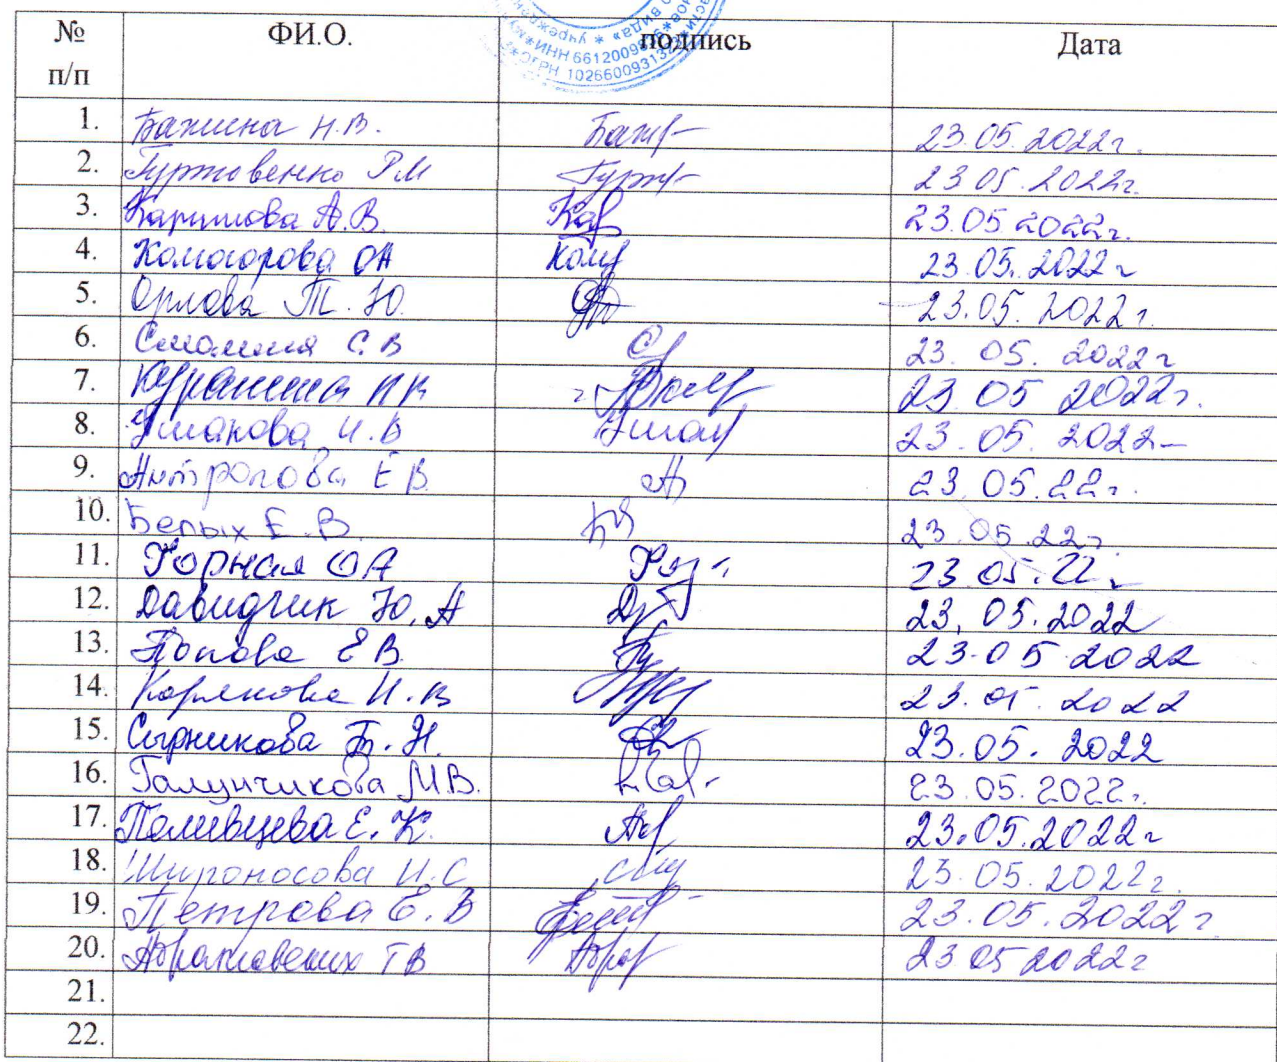 учрежден * вида»
*ИНН 6612009
*ОГРН 1026600931
№ п/п ФИ.О. подпись Дата
1. Бажина Н.В. Баж 23.05.2022г.
2. Гуртовенко Р М Гурт 23 05. 2022г.
3. Каримова А.В. Кар 23.05 2022г.
4. Комогорова ОА Кому 23.05.2022г
5. Орлова Т.Ю. 23.05.2022г.
6. Смолина С.В 23. 05. 2022г
7. 23 05 2022г.
8. Ушакова И.В Ушак 23.05. 2022
9. Антропова Е В. 23.05.22г.
10. Белых Е.В. 23.05.22г
11. Горная ОА 23.05.22г
12. Давидчик Ю.А 23.05.2022
13. Попова Е В. 23.05 2022
14. Корякова И.В 23.05.2022
15. Сырникова Т.Н. 23.05. 2022
16. Галунчикова М.В. 23.05.2022г.
17. Поливцева Е.К. 23.05.2022г
18. Широносова И.С 23.05.2022г.
19. Петрова Е.В 23.05.2022г
20. Абрамовских Т В Абр 23 05 2022г
21.
22.